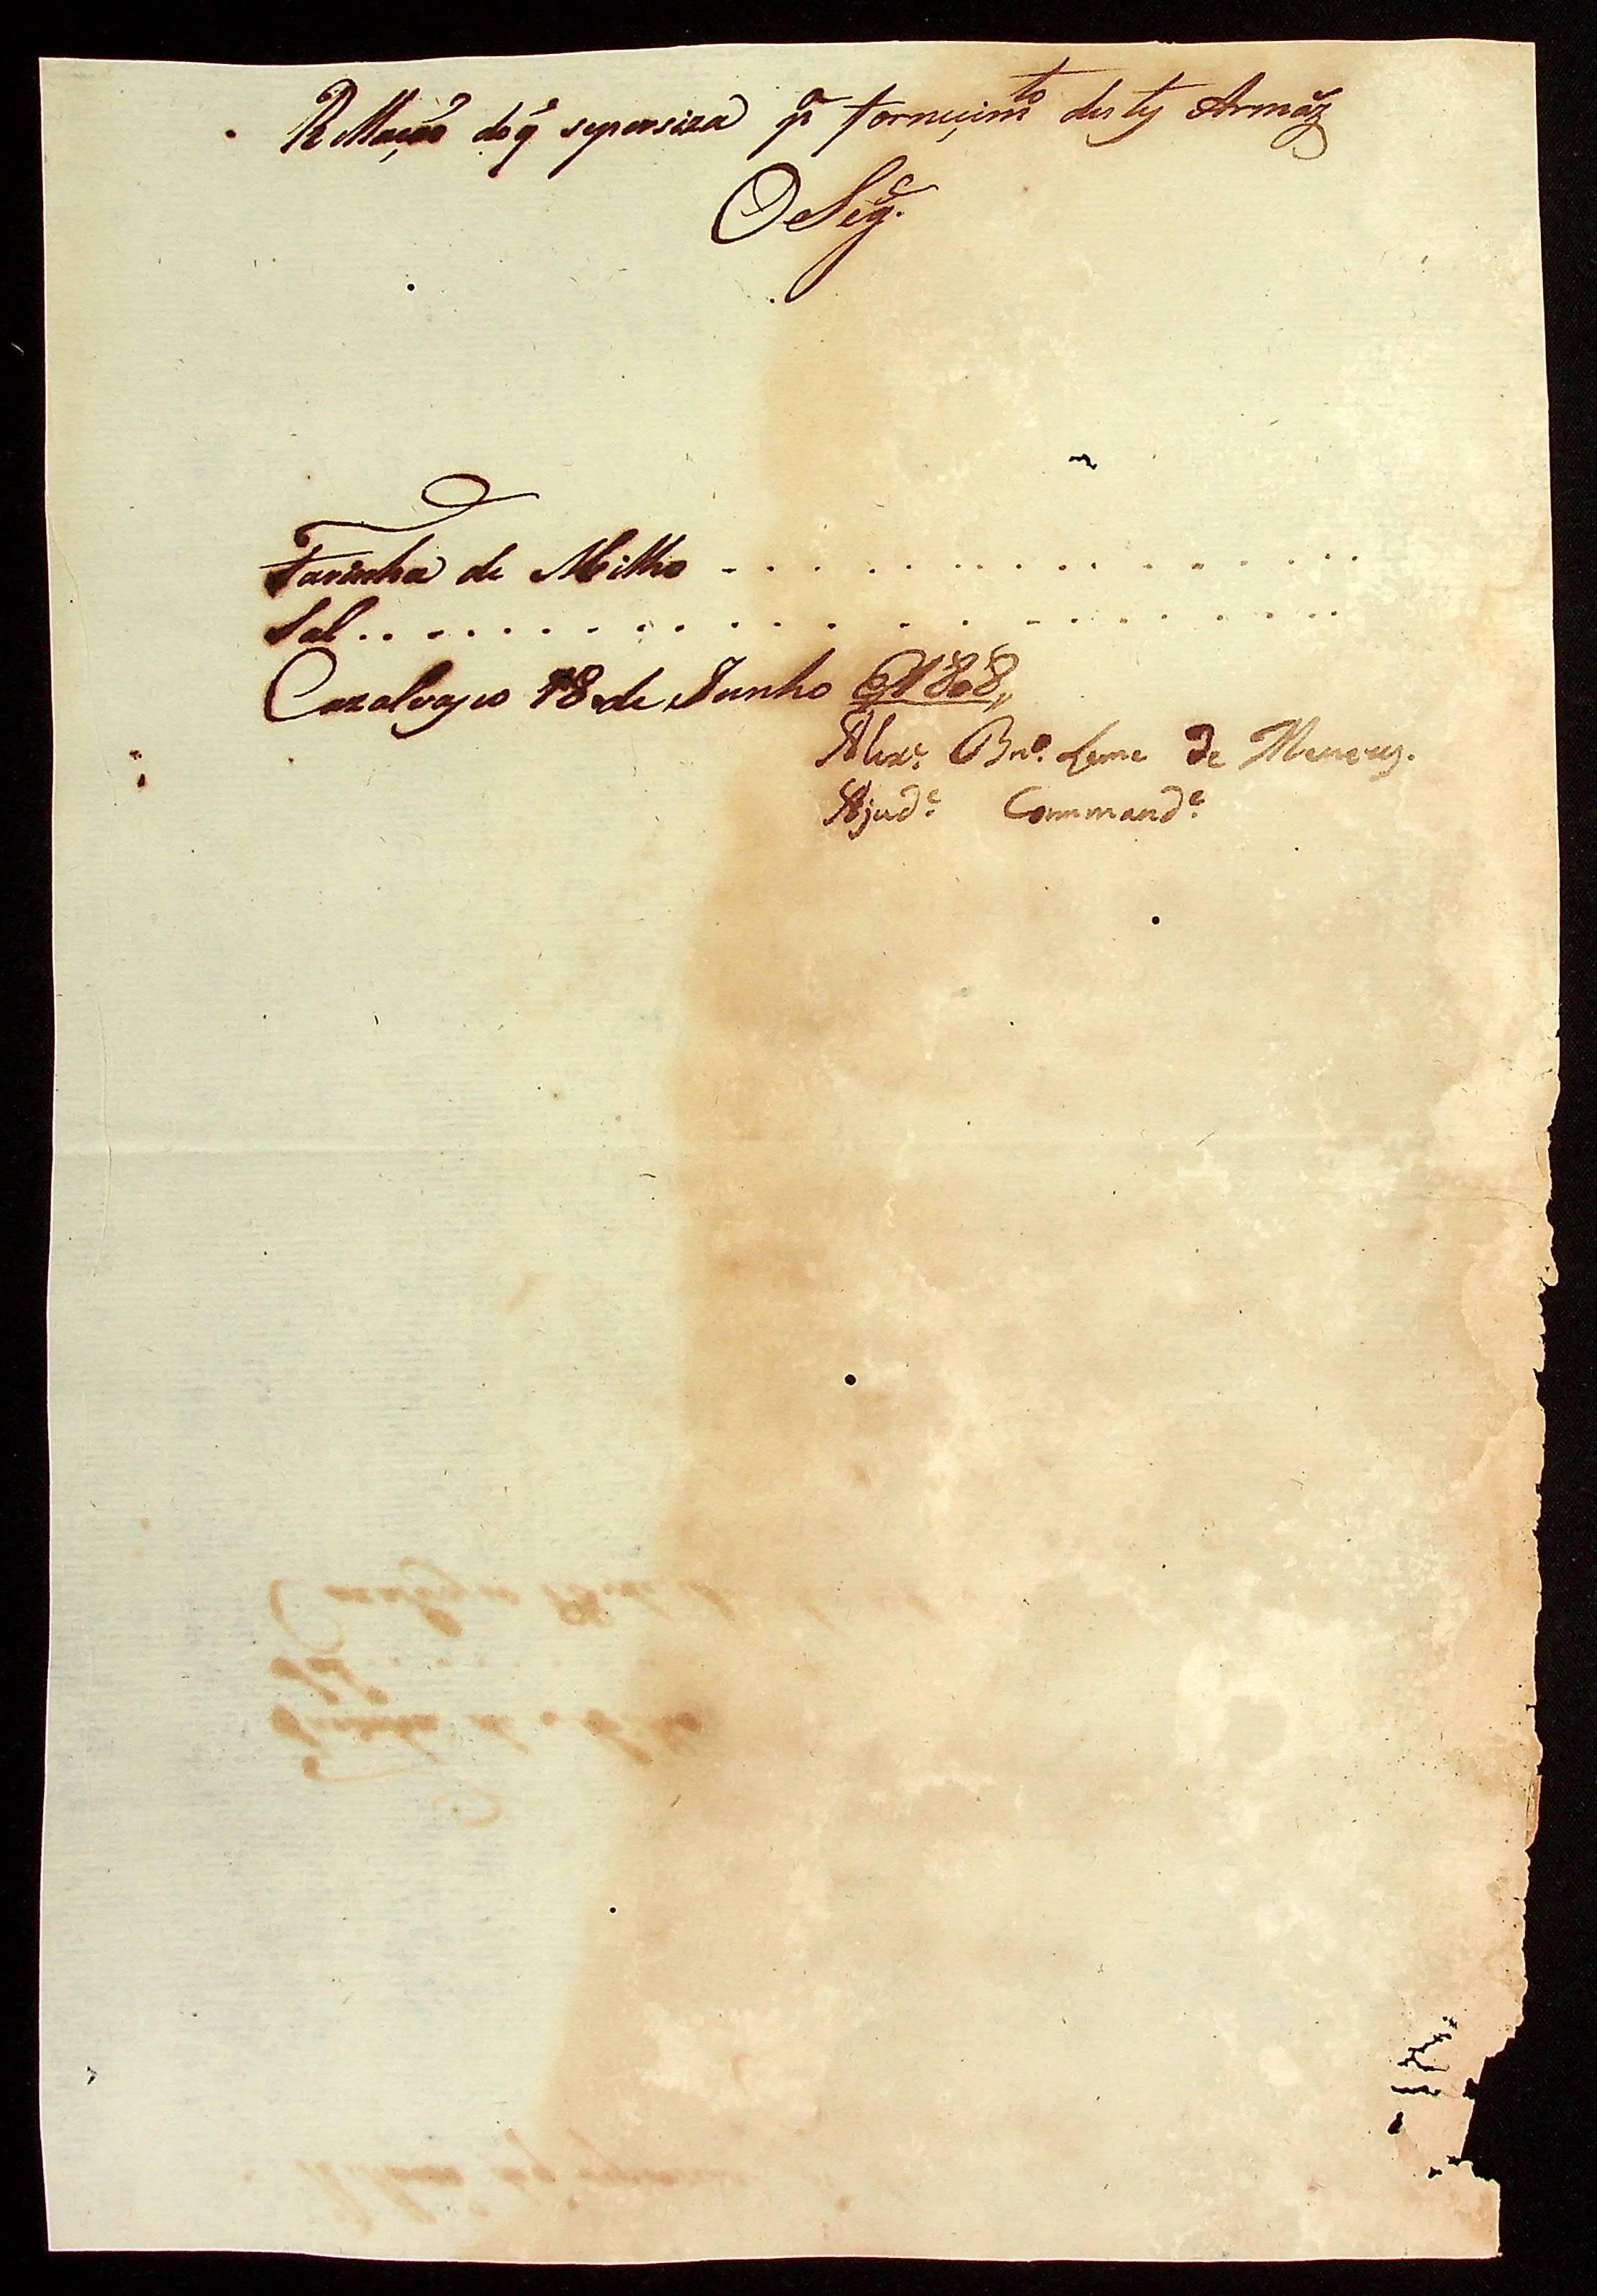 Rellação do q̃ seperciza pª fornecimto deste Armãz
O Segᵉ.
Farinha de Milho - . . . . . . . . . . . . . . .
Sal . . . . . . . . . . . . . . . . . . .
Cazalvasco 18 de Junho de 1808,,
Alexᵉ. Bnº. Leme de Menezes.
Ajudᵉ. Commandᵉ.